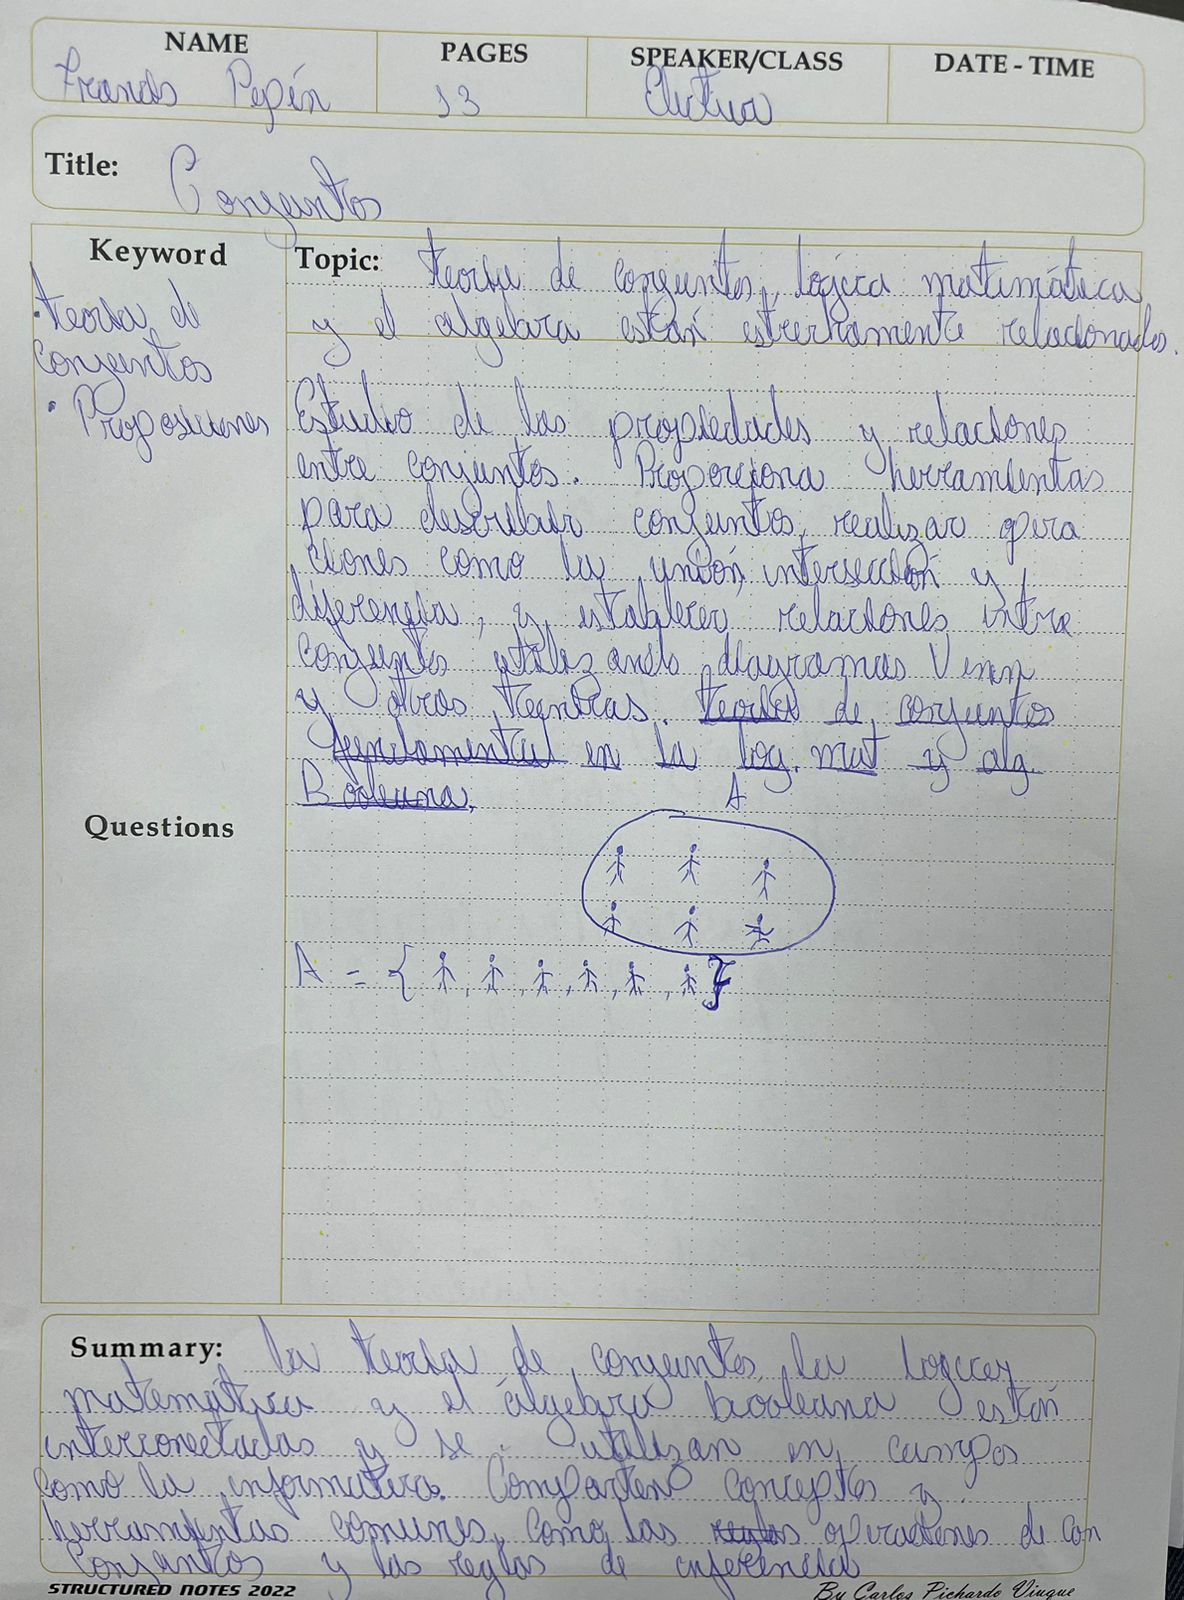 NAME
Francis Pepín
PAGES
13
SPEAKER/CLASS
Electiva
DATE - TIME
Title: Conjuntos
Keyword
• teoría de
conjuntos
• Proposiciones
Topic: teoría de conjuntos, lógica matemática
y el algebra están estrechamente relacionados.
Estudio de las propiedades y relaciones
entre conjuntos. Proporciona herramientas
para describir conjuntos, realizar opera
ciones como la unión, intersección y
diferencia, y establecer relaciones entre
conjuntos utilizando diagramas Venn
y otros tecnicas. teoria de conjuntos
fundamental en la log. mat y alg.
Booleana.
A
A = { , , , , , }
Questions
Summary: la teoría de conjuntos, la logica
matemática y el álgebra booleana están
interconectadas y se utilizan en campos
como la informatica. Comparten conceptos y
herramientas comunes, como las reglas operaciones de con
conjuntos y las reglas de inferencia
STRUCTURED NOTES 2022
By Carlos Pichardo Viuque